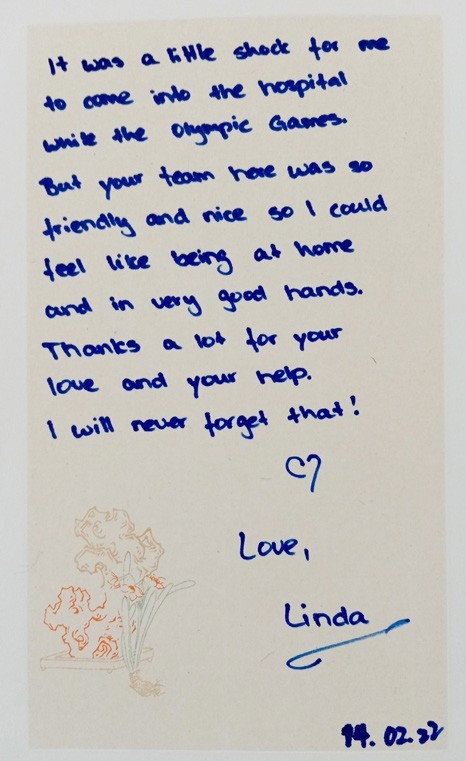 It was a little shock for me
to come into the hospital
while the Olympic Games.
But your team here was so
friendly and nice so I could
feel like being at home
and in very good hands.
Thanks a lot for your
love and your help.
I will never forget that!
♡
Love,
Linda
14.02.22